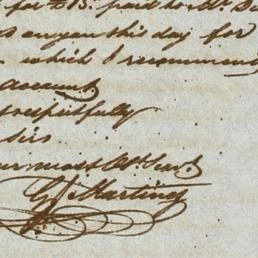 for £15. paid to Mr.
this day for
which I recommend
account
respectfully
Sirs
most Obt. Servt.
Martin